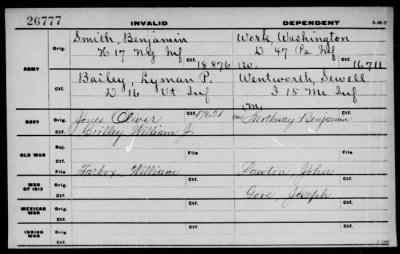 26777 INVALID DEPENDENT
Smith, Benjamin Work, Washington
Orig. K 17 Ny Inf D 47 Pa Inf
ARMY Ctf. 18876 Ctf. 16711
Bailey, Lyman P. Wentworth, Sewell
D 16 Vt Inf I 15 Me Inf
Ctf. Ctf.
NAVY Orig. Jones Oliver 17621 Northway Benjamin
Ctf. Crilley William J.
OLD WAR Rej.
Ctf. File File
WAR OF 1812 Orig. Tarbox, William Lawton, John
Ctf. Gove, Joseph
MEXICAN WAR Orig.
Ctf. Ctf.
INDIAN WAR Orig.
Ctf. Ctf.